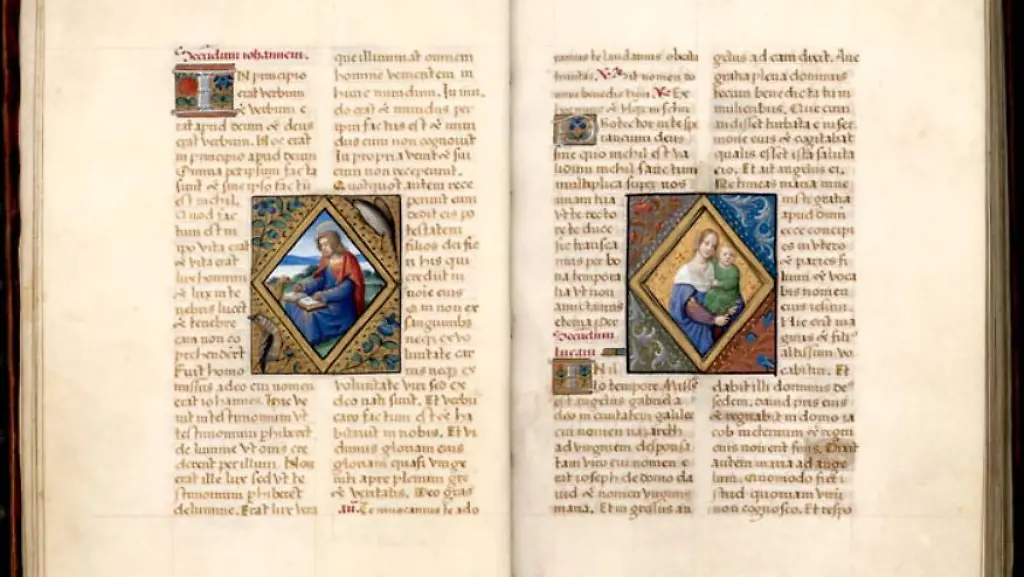 Secundum iohannem.
IN principio
erat verbum
& verbum e
rat apud deum & deus
erat verbum. Hoc erat
in principio apud deum
Omnia per ipsum facta
sunt & sine ipso factū
est nichil.
Quod fac
tum est in
ipo vita erat
& vita erat
lux hominū
& lux in te
nebris lucet
& tenebre
eam non co
prehenderūt
Fuit homo
missus a deo cui nomen
erat iohannes. Hic ve
nit in testimonium vt
testimonium phiberet
de lumine vt oms cre
derent per illum. Non
erat ille lux sed vt te
stimonium phiberet
de lumine. Erat lux vera
que illuminat omnem
hominē venientem in
hunc mundum. In mu.
do erat & mundus per
ipm factus est & mun
dus eum non cognouit
In propria venit & sui
eum non receperunt.
Quotquot autem rece
perunt eum
dedit eis po
testatem
filios dei fie
ri his qui
credunt in
noīe eius
Qui non ex
sanguinibus
neqz ex vo
luntate car
nis neqz ex
voluntate viri sed ex
deo nati sunt. Et verbū
caro factum est & ha
bitauit in nobis. Et vi
dimus gloriam eius
gloriam quasi vnige
niti a pre plenum gre
& veritatis. Deo gras
añ. Te inuocamus te ado
ramus te laudamus o beata
trinitas. Sit nomen do
mini benedictum Ex
Protector in te spe
rancium deus
sine quo nichil est va
lidum nichil sanctum
multiplica super nos
mam tua
vt te recto
re te duce
sic transea
mus per bo
na tempora
lia vt non
amictamus
eterna per
Secundum
lucam
IN il
lo tempore. Missus
est angelus gabriel a
deo in ciuitatem galilee
cui nomen nazareth
ad virginem desponsa
tam viro cui nomen e
rat ioseph de domo da
uid & nomen virginis
maria. Et ingressus an
gelus ad eam dixit. Aue
gratia plena dominus
tecum benedicta tu in
mulieribus. Que cum
audisset turbata e in ser
mone eius & cogitabat
qualis esset ista saluta
cio. Et ait angelus ei.
Ne timeas maria inue
nisti gratiā
apud dūm
ecce concipi
es in vtero
& paries fi
lium & voca
bis nomen
eius iesum.
Hic erit ma
gnus & fili
altissimi vo
cabitur. Et
dabit illi dominus de
sedem. dauid pris eius
& regnabit in domo ia
cob in eternum & regni
eius non erit finis. Dixit
autem maria ad ange
lum. Quomodo fiet i
stud quoniam virū
non cognosco. Et respō